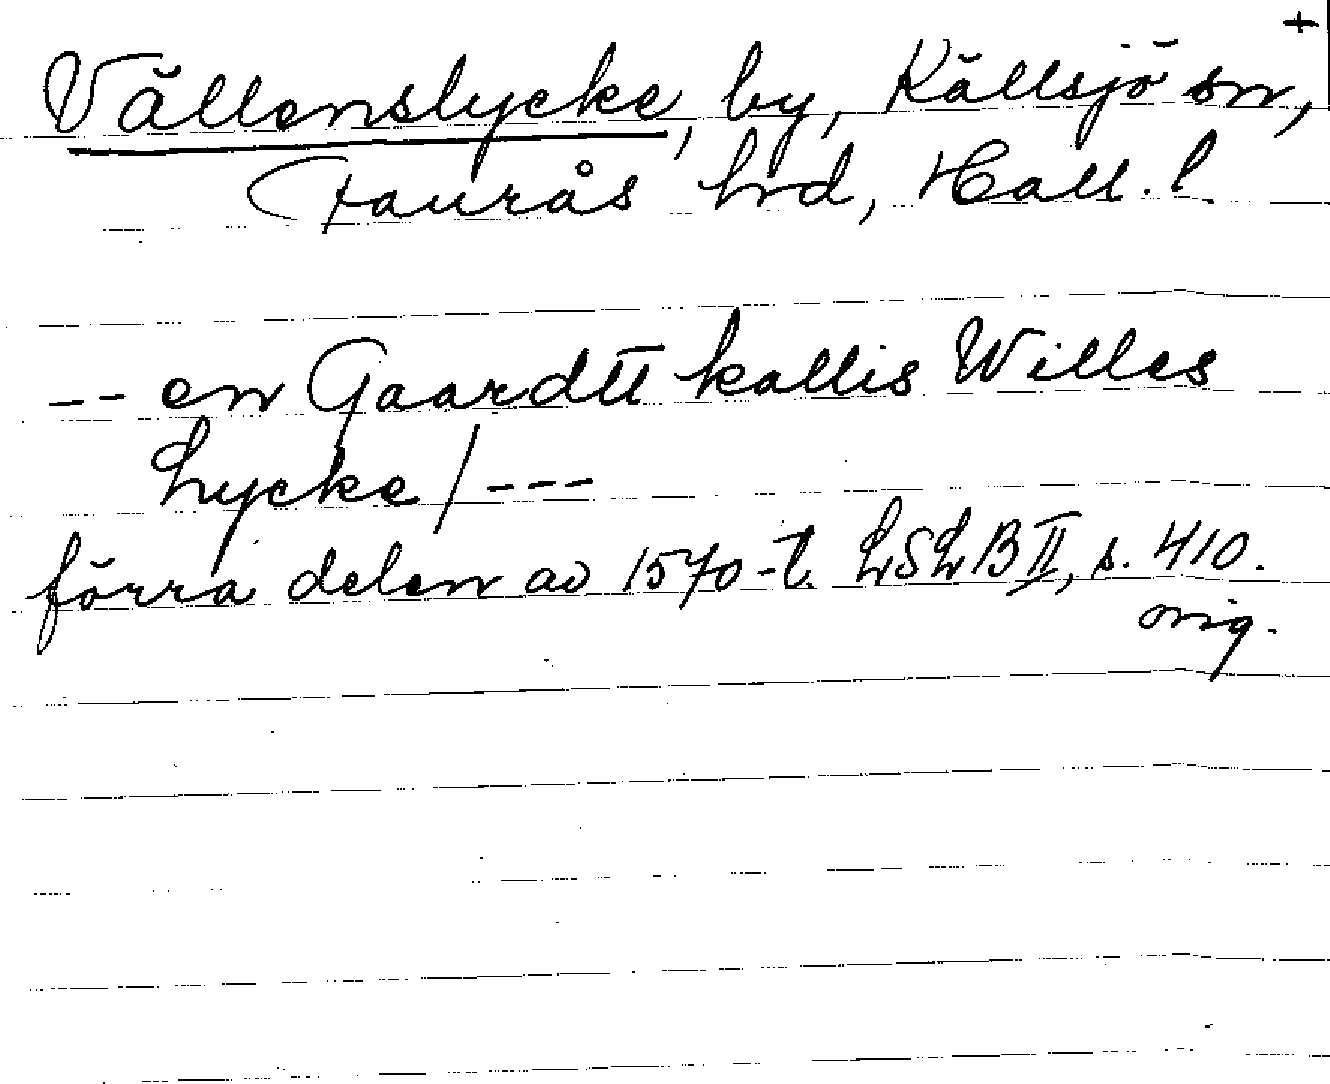 +
Vällenslycke, by, Källsjö sn,
Faurås hrd, Hall. l.
-- en Gaardtt kallis Willes
Lycke / ---
förra delen av 1570-t. LSLB II, s. 410.
orig.